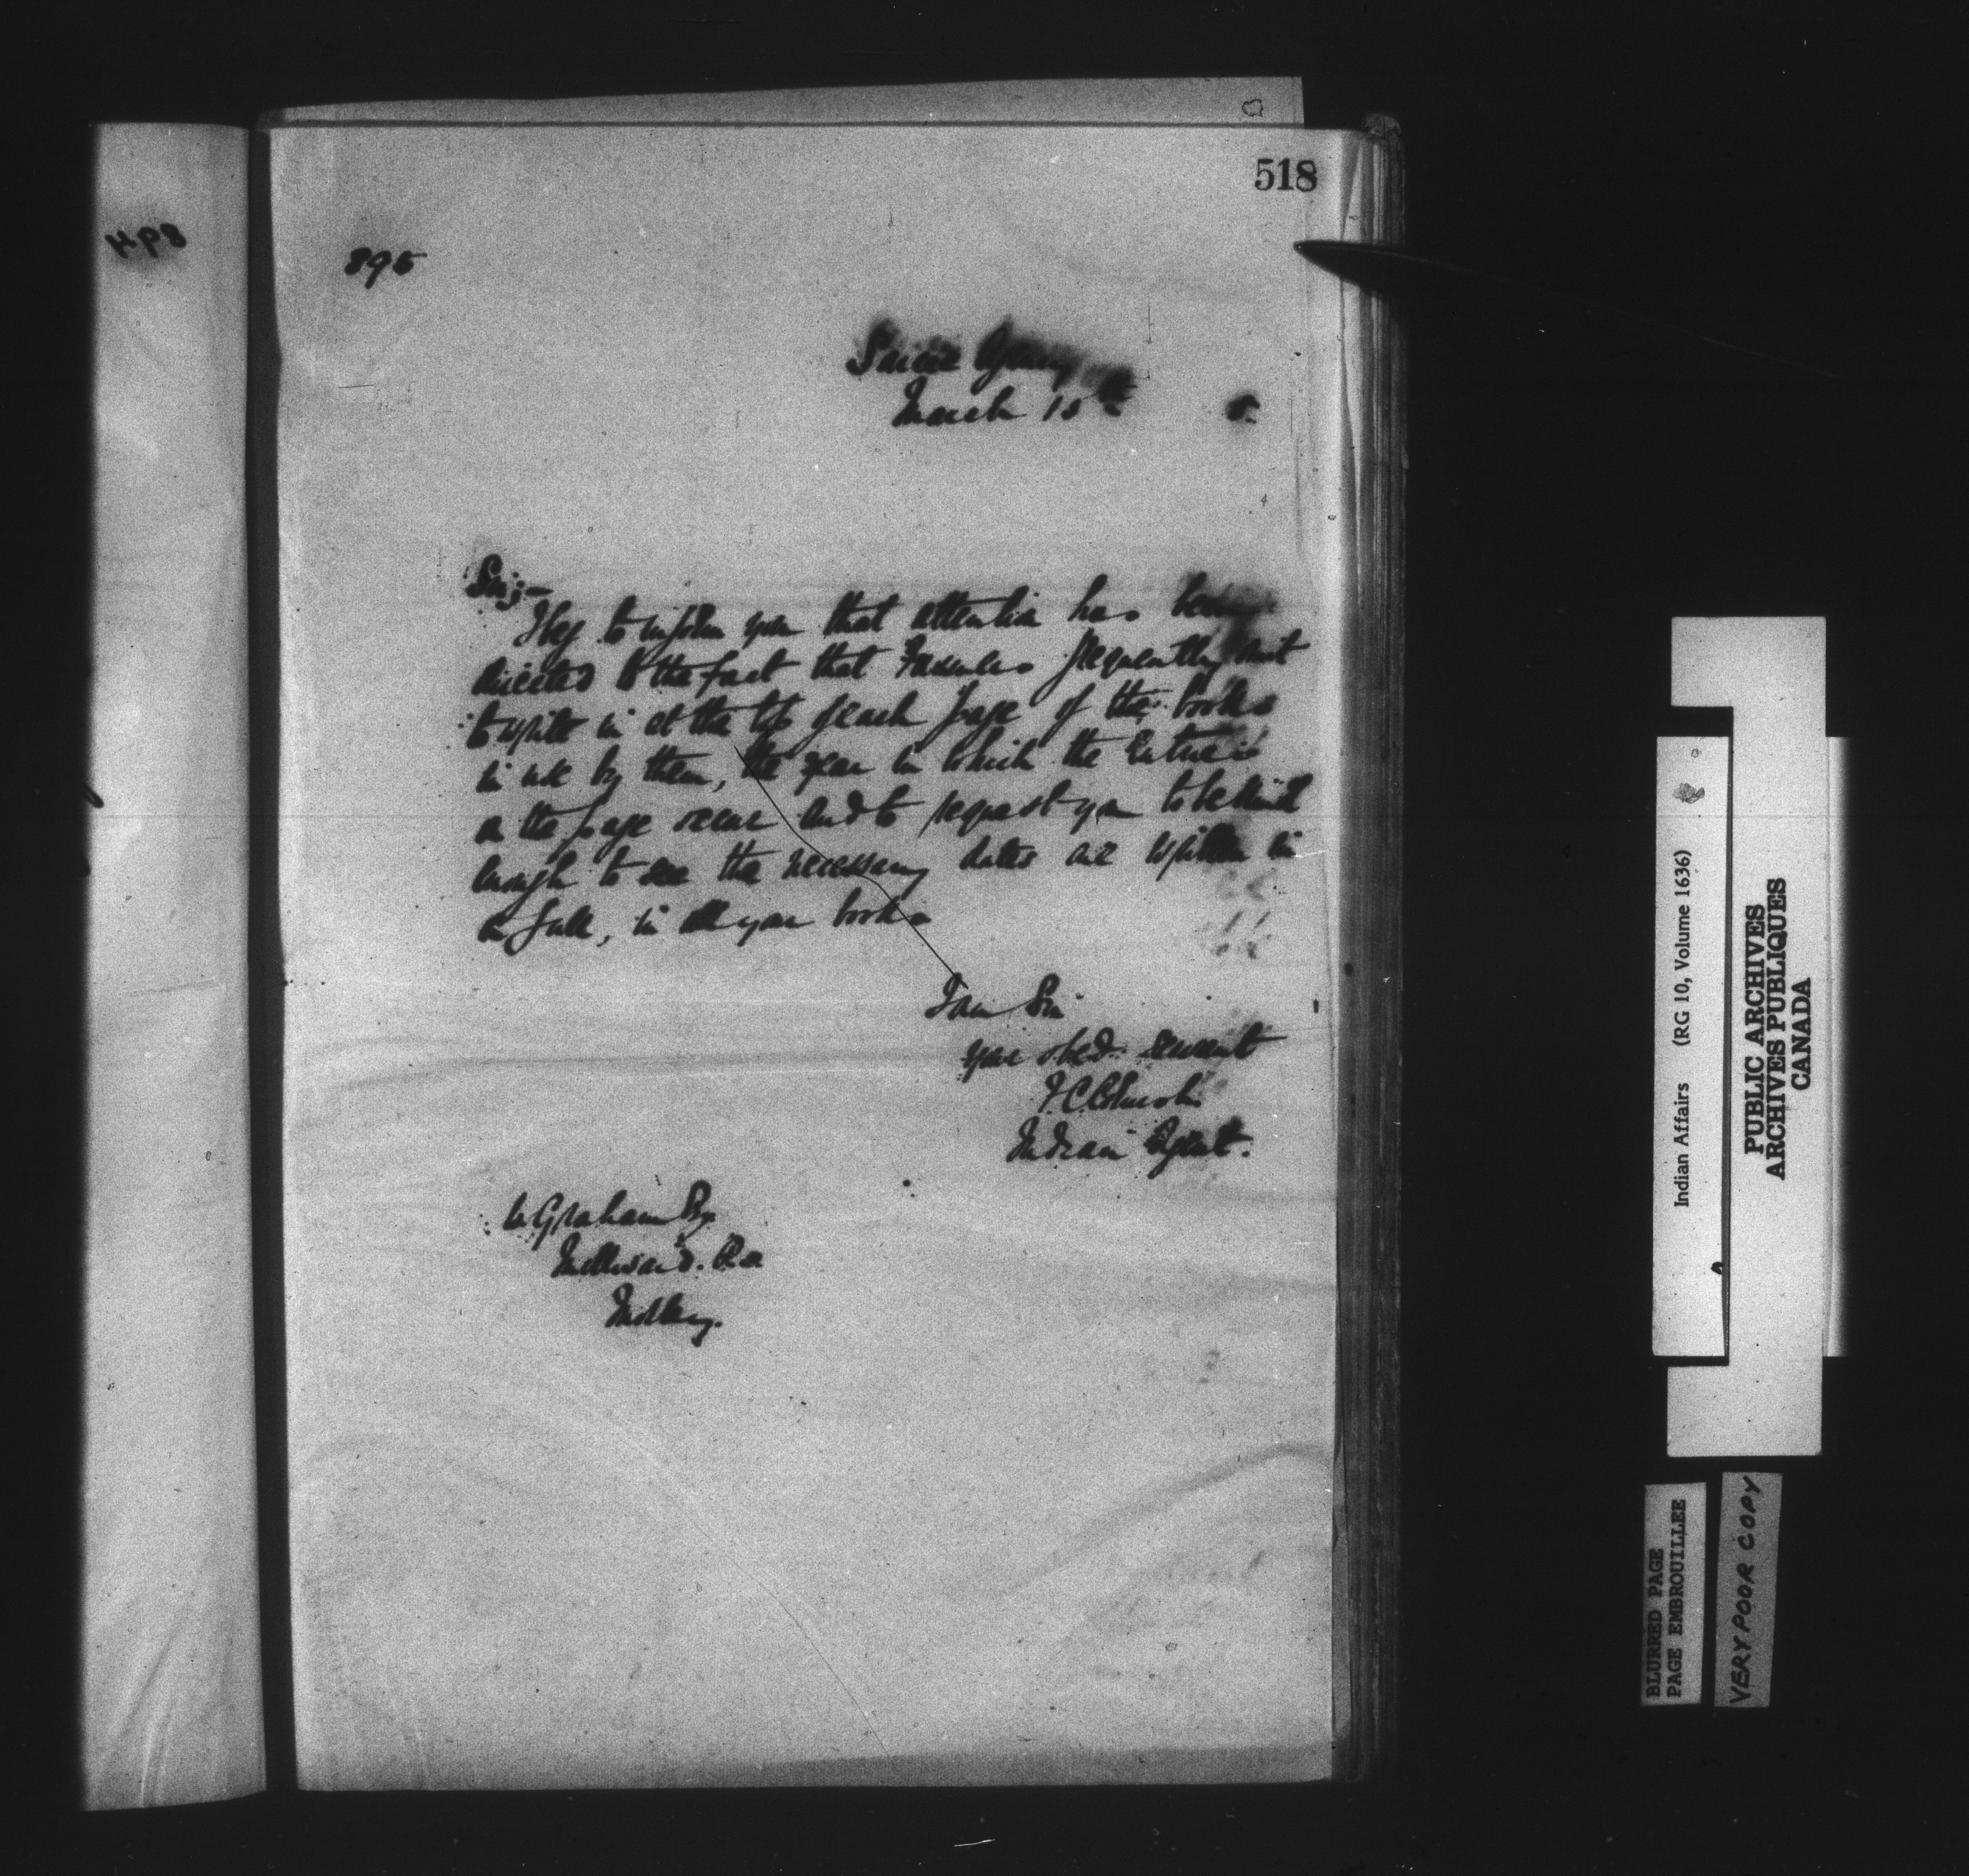 518
895
Sarcee Agency
March 15th 5.
Sir;-
I beg to inform you that attention has been
directed to the fact that Farmers frequently omit
to write in at the top of each page of the books
in use by them, the year in which the entries
on the page occur and to request you to be kind
enough to see the necessary dates are written in
in full, in all your books
I am Sir
your obed. servant
Indian Agent.
W Graham Esq
Morley.
Indian Affairs (RG 10, Volume 1636)
PUBLIC ARCHIVES
ARCHIVES PUBLIQUES
CANADA
BLURRED PAGE
PAGE EMBROUILLEE
VERY POOR COPY